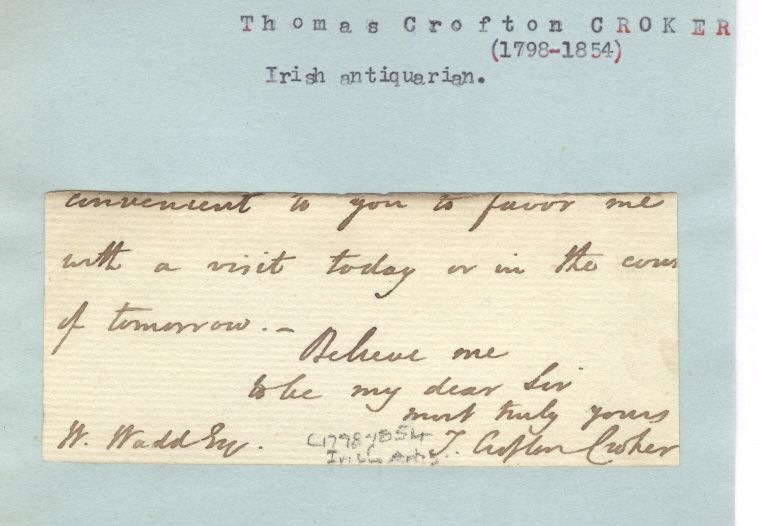 Thomas Crofton CROKER
(1798-1854)
Irish antiquarian.
convenient to you to favor me
with a visit today or in the cours
of tomorrow. –
Believe me
to be my dear Sir
most truly yours
W. Wadd Esq.
T. Crofton Croker
(1798-1854
Irish Antq.